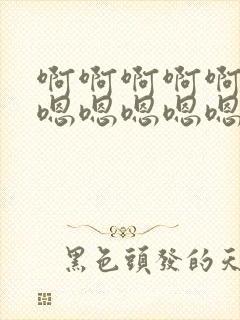 啊啊啊啊啊
嗯嗯嗯嗯嗯
黑色頭發的天